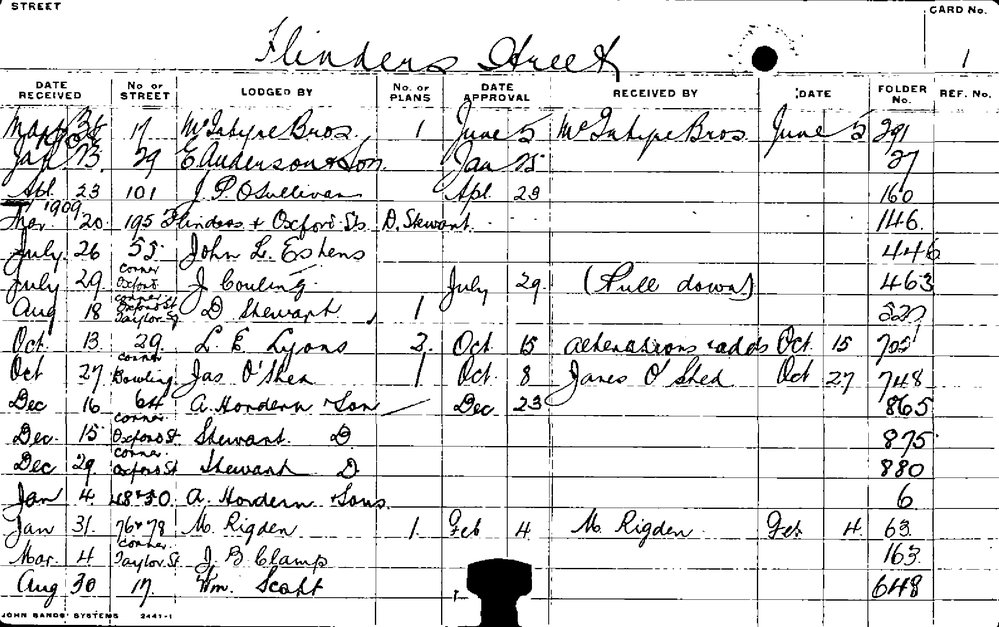 STREET CARD No.
Flinders Street 1
DATE RECEIVED No. OF STREET LODGED BY No. OF PLANS DATE APPROVAL RECEIVED BY DATE FOLDER No. REF. No.
17 McIntyre Bros. 1 June 5 McIntyre Bros June 5 291
Jan 23 29 E Anderson & Son Jan 25 27
Apl. 23 101 J. P. O'Sullivan Apl 29 160
1909
Mar. 20 195 Flinders & Oxford Sts D. Stewart 146
July 26 55 John L. Eshens 446
July 29 corner Oxford J Couling July 29 (Pull down) 463
Aug 18 corner Oxford St Taylor Sq D Stewart 1
Oct 13 29 L. E. Lyons 2 Oct 15 alterations & adds Oct 15 702
Oct 27 corner Bowling Jas O'Shea 1 Oct 8 James O'Shea Oct 27 748
Dec 16 64 A. Hordern & Son Dec 23 865
Dec. 15 corner Oxford St Stewart D 875
Dec 29 corner Oxford St Stewart D 880
Jan 4 48-50 A. Hordern & Sons 6
Jan 31 76 & 78 M. Rigden 1 Feb 4 M. Rigden Feb 4 63
Mar. 4 corner Taylor St J B Clamp 163
Aug 30 17 Wm. Scott 648
JOHN SANDS' SYSTEMS 2441-1